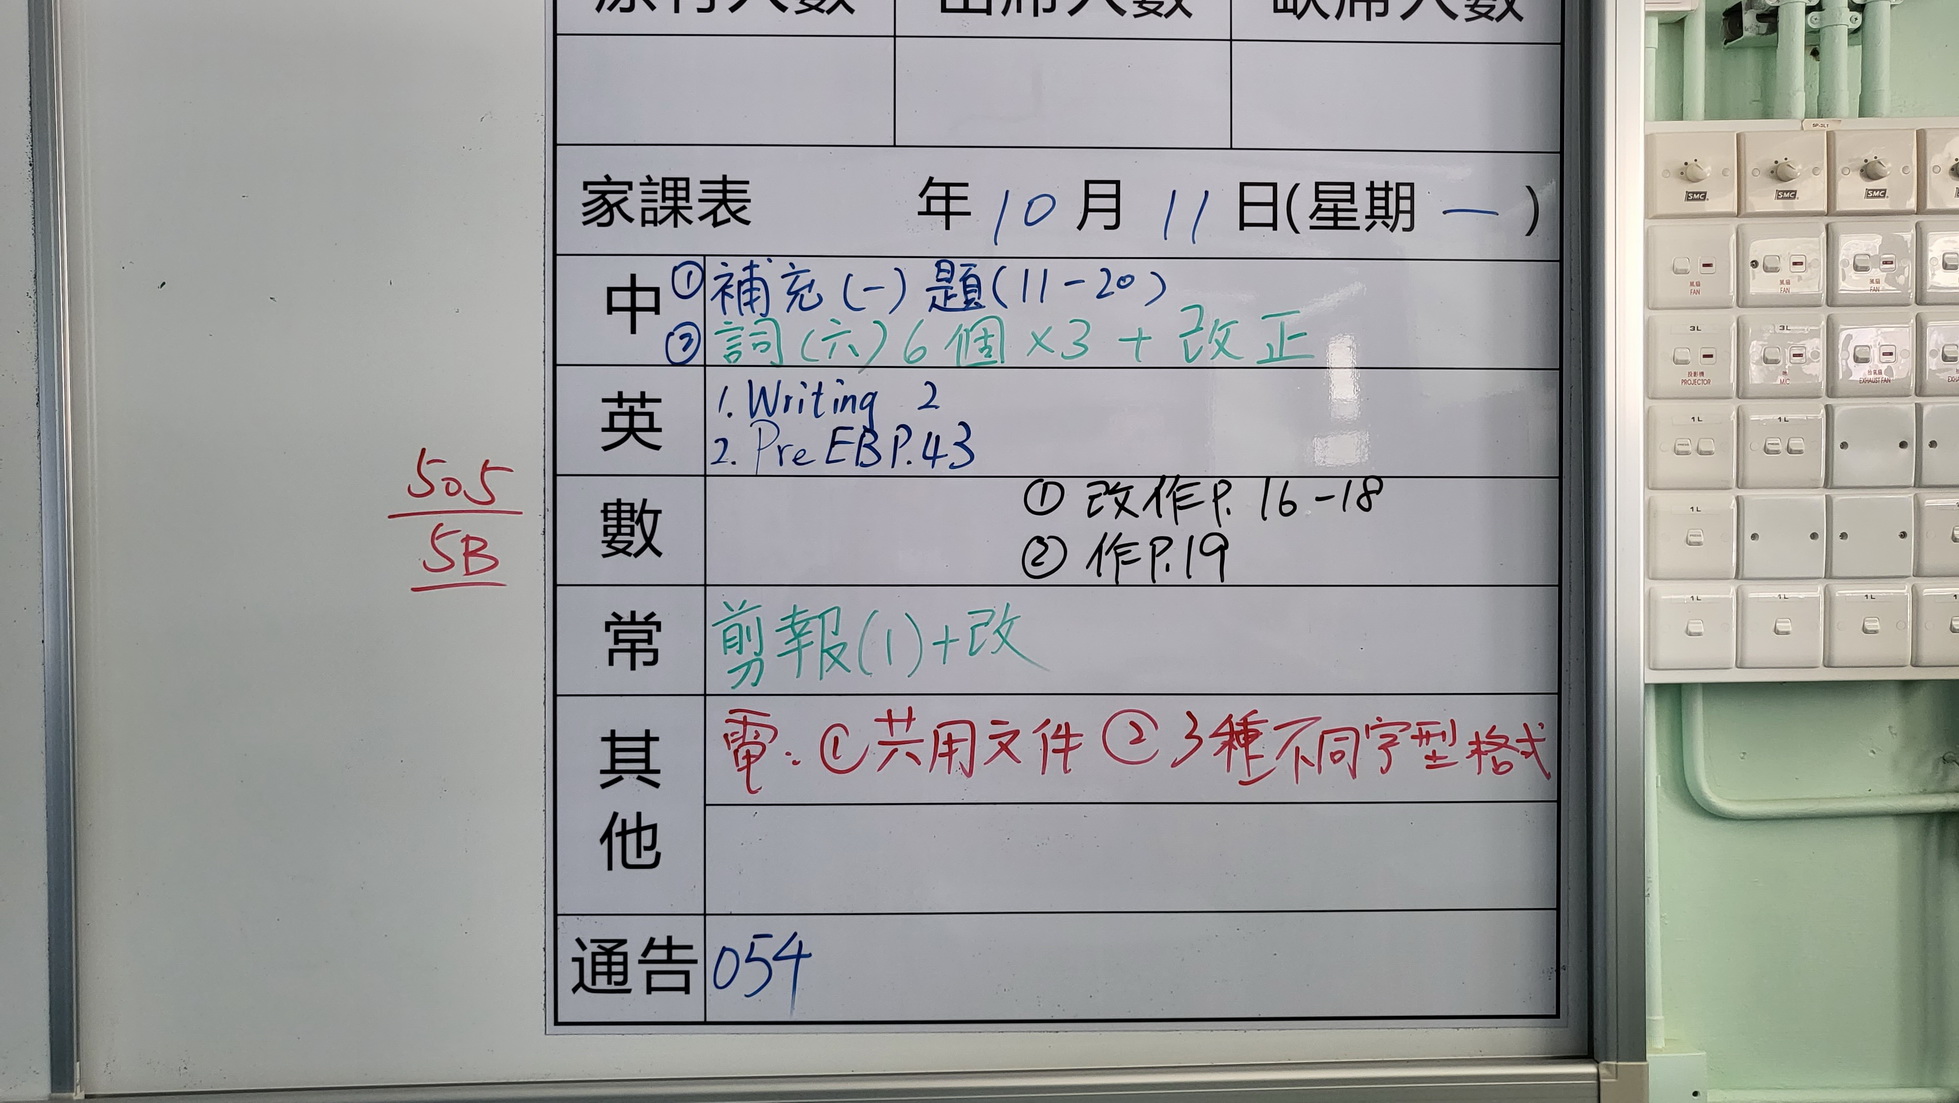 原有人數 出席人數 缺席人數
家課表 年 10 月 11 日(星期 一 )
中 ① 補充(一)題(11-20)
② 詞(六)6個×3+改正
英 1. Writing 2
2. Pre EB P.43
數 ① 改作P. 16-18
② 作P.19
常 剪報(1)+改
其他 電. ① 共用文件 ② 3種不同字型格式
通告 054
505
5B
SMC SMC SMC
風扇 風扇 風扇
FAN FAN FAN
3L 3L
投影機
PROJECTOR MIC EXHAUST FAN
1L 1L
1L
1L 1L 1L